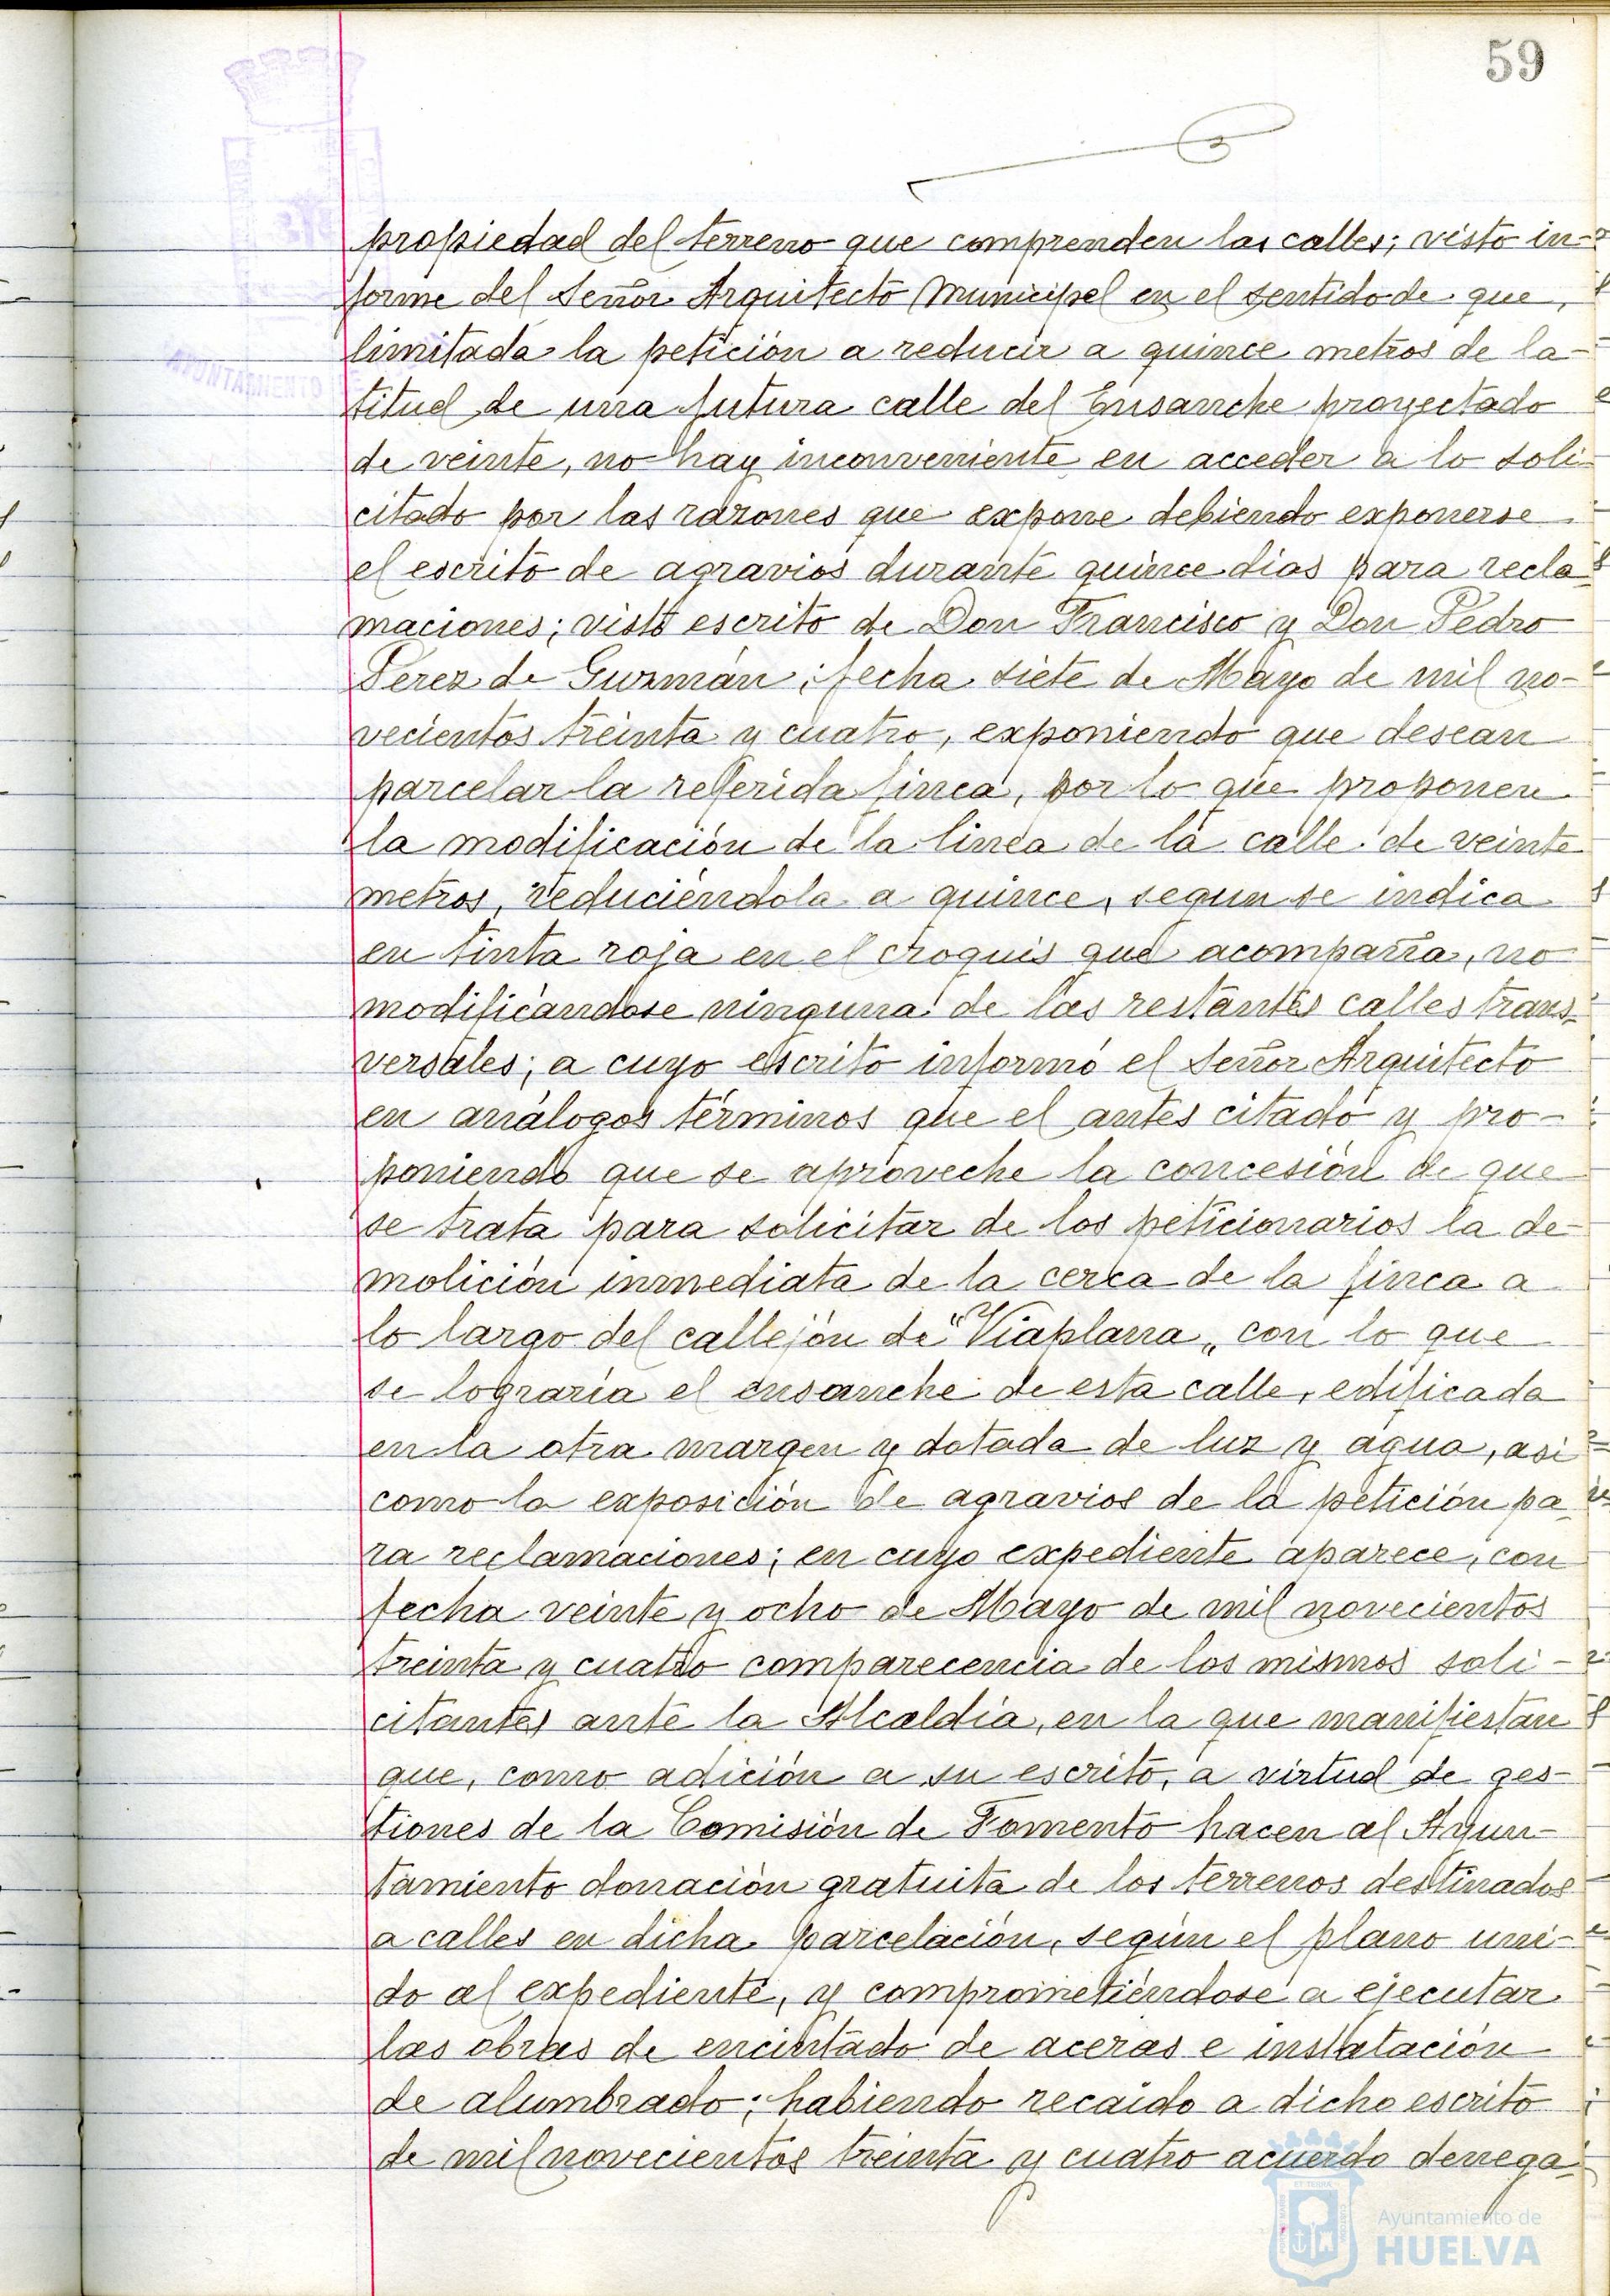 59
propiedad del terreno que comprenden las calles; visto in-
forme del Señor Arquitecto Municipal en el sentido de que,
limitada la petición a reducir a quince metros de la-
titud de una futura calle del Ensanche proyectado
de veinte, no hay inconveniente en acceder a lo soli-
citado por las razones que expone debiendo exponerse
el escrito de agravios durante quince dias para recla-
maciones; visto escrito de Don Francisco y Don Pedro
Pérez de Guzmán, fecha siete de Mayo de mil no-
vecientos treinta y cuatro, exponiendo que desean
parcelar la referida finca, por lo que proponen
la modificación de la linea de la calle de veinte
metros, reduciéndola a quince, segun se indica
en tinta roja en el croquis que acompaña, no
modificándose ninguna de las restantes calles trans-
versales; a cuyo escrito informó el Señor Arquitecto
en análogos términos que el antes citado y pro-
poniendo que se aproveche la concesión de que
se trata para solicitar de los peticionarios la de-
molición inmediata de la cerca de la finca a
lo largo del callejón de "Viaplana", con lo que
se lograría el ensanche de esta calle, edificada
en la otra margen y dotada de luz y agua, asi
como la exposición de agravios de la petición pa-
ra reclamaciones; en cuyo expediente aparece, con
fecha veinte y ocho de Mayo de mil novecientos
treinta y cuatro comparecencia de los mismos soli-
citantes ante la Alcaldía, en la que manifiestan
que, como adición a su escrito, a virtud de ges-
tiones de la Comisión de Fomento hacen al Ayun-
tamiento donación gratuita de los terrenos destinados
a calles en dicha parcelación, según el plano uni-
do al expediente, y comprometiéndose a ejecutar
las obras de encintado de aceras e instalación
de alumbrado; habiendo recaido a dicho escrito
de mil novecientos treinta y cuatro acuerdo denega-
AYUNTAMIENTO DE
Ayuntamiento de
HUELVA